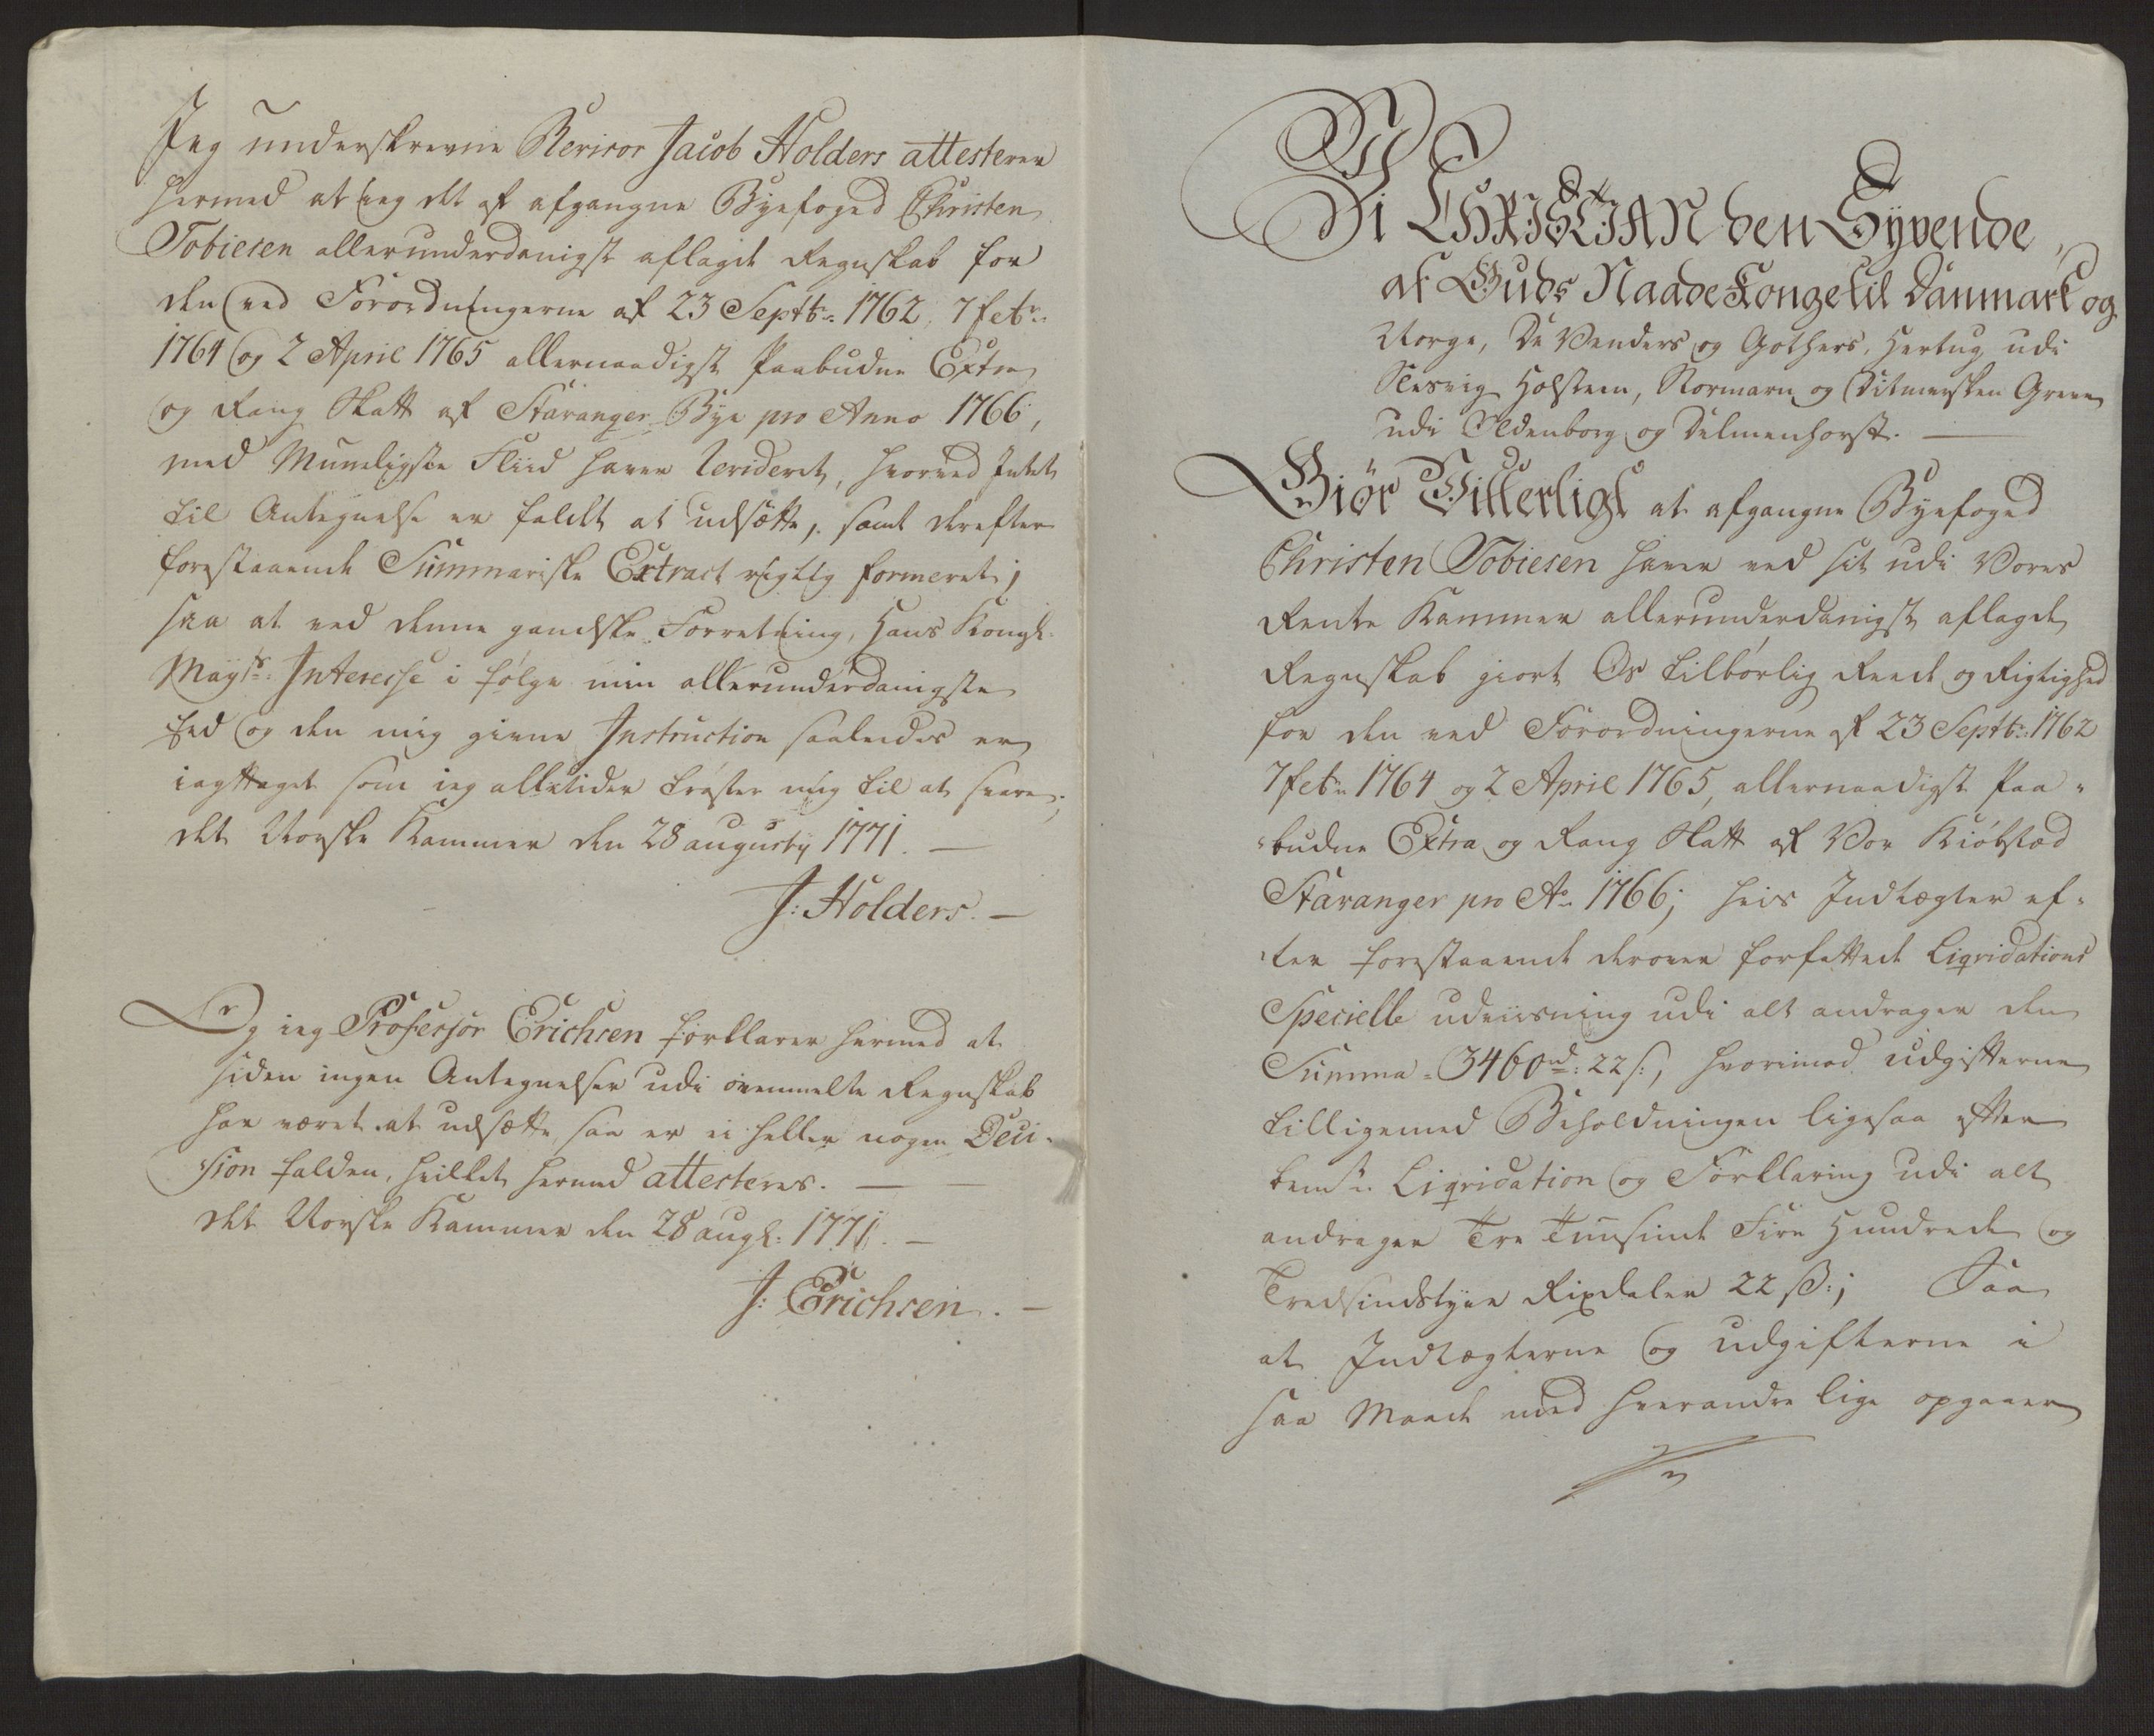 Jeg underskrevne Revisor Jacob Holders attesterer
hermed at jeg det af afgangne Byefoged Christen
Tobiesen allerunderdanigst aflagde Regnskab for
den ved Forordningerne af 23 Septbr: 1762, 7 febr:
1764 og 2 April 1765 allernaadigst Paabudne Extra
og Rang Skatt af Stavanger Bye pro Anno 1766,
med Mueligste Fliid haver Revideret, hvorved Intet
til Antegnelse er faldt at udsætte, samt derefter
forestaaende Summariske Extract rigtig formeret;
saa at ved denne gandske Forretning, Hans Kongl:
Mayts: Interesse i følge min allerunderdanigste
Eed og den mig givne Instruction saaledes er
iagttaget som ieg alletider trøster mig til at svare;
Det Norske Kammer den 28 augustij 1771. —
J: Holders. —
Og ieg Professor Erichsen forklarer hermed at
siden ingen Antegnelser udi ovenmelte Regnskab
har været at udsætte, saa er ei heller nogen Deci-
sion falden, hvilket herved attesteres. —
Det Norske Kammer den 28 aug: 1771. —
J: Erichsen. —
Vi CHRISTIAN den Syvende,
af Guds Naade Konge til Danmark og
Norge, De Venders og Gothers, Hertug udi
Slesvig Holsteen, Stormarn og Ditmersken Greve
udi Oldenborg og Delmenhorst. —
Giør Vitterligt at afgangne Byefoged
Christen Tobiesen haver ved sit udi Vores
Rente Kammer allerunderdanigst aflagde
Regnskab giort Os tilbørlig Reede og Rigtighed
for den ved Forordningerne af 23 Septbr: 1762
7 febr: 1764 og 2 April 1765, allernaadigst Paa-
budne Extra og Rang Skatt af Vor Kiøbstad
Stavanger pro Ao 1766; hvis Indtægter ef-
ter forestaaende derover forfattede Liqvidations
Specielle udviisning udi alt andrager den
Summa 3460 rd: 22 s:, hvorimod udgifterne
tilligemed Beholdningen ligesaa efter
bemte: Liqvidation og Forklaring udi alt
andrager Tre Tuusinde Fire Hundrede og
Tredsindstyve Rixdaler 22 ß:; Saa
at Indtægterne og udgifterne i
saa Maade mod hverandre lige opgaaer